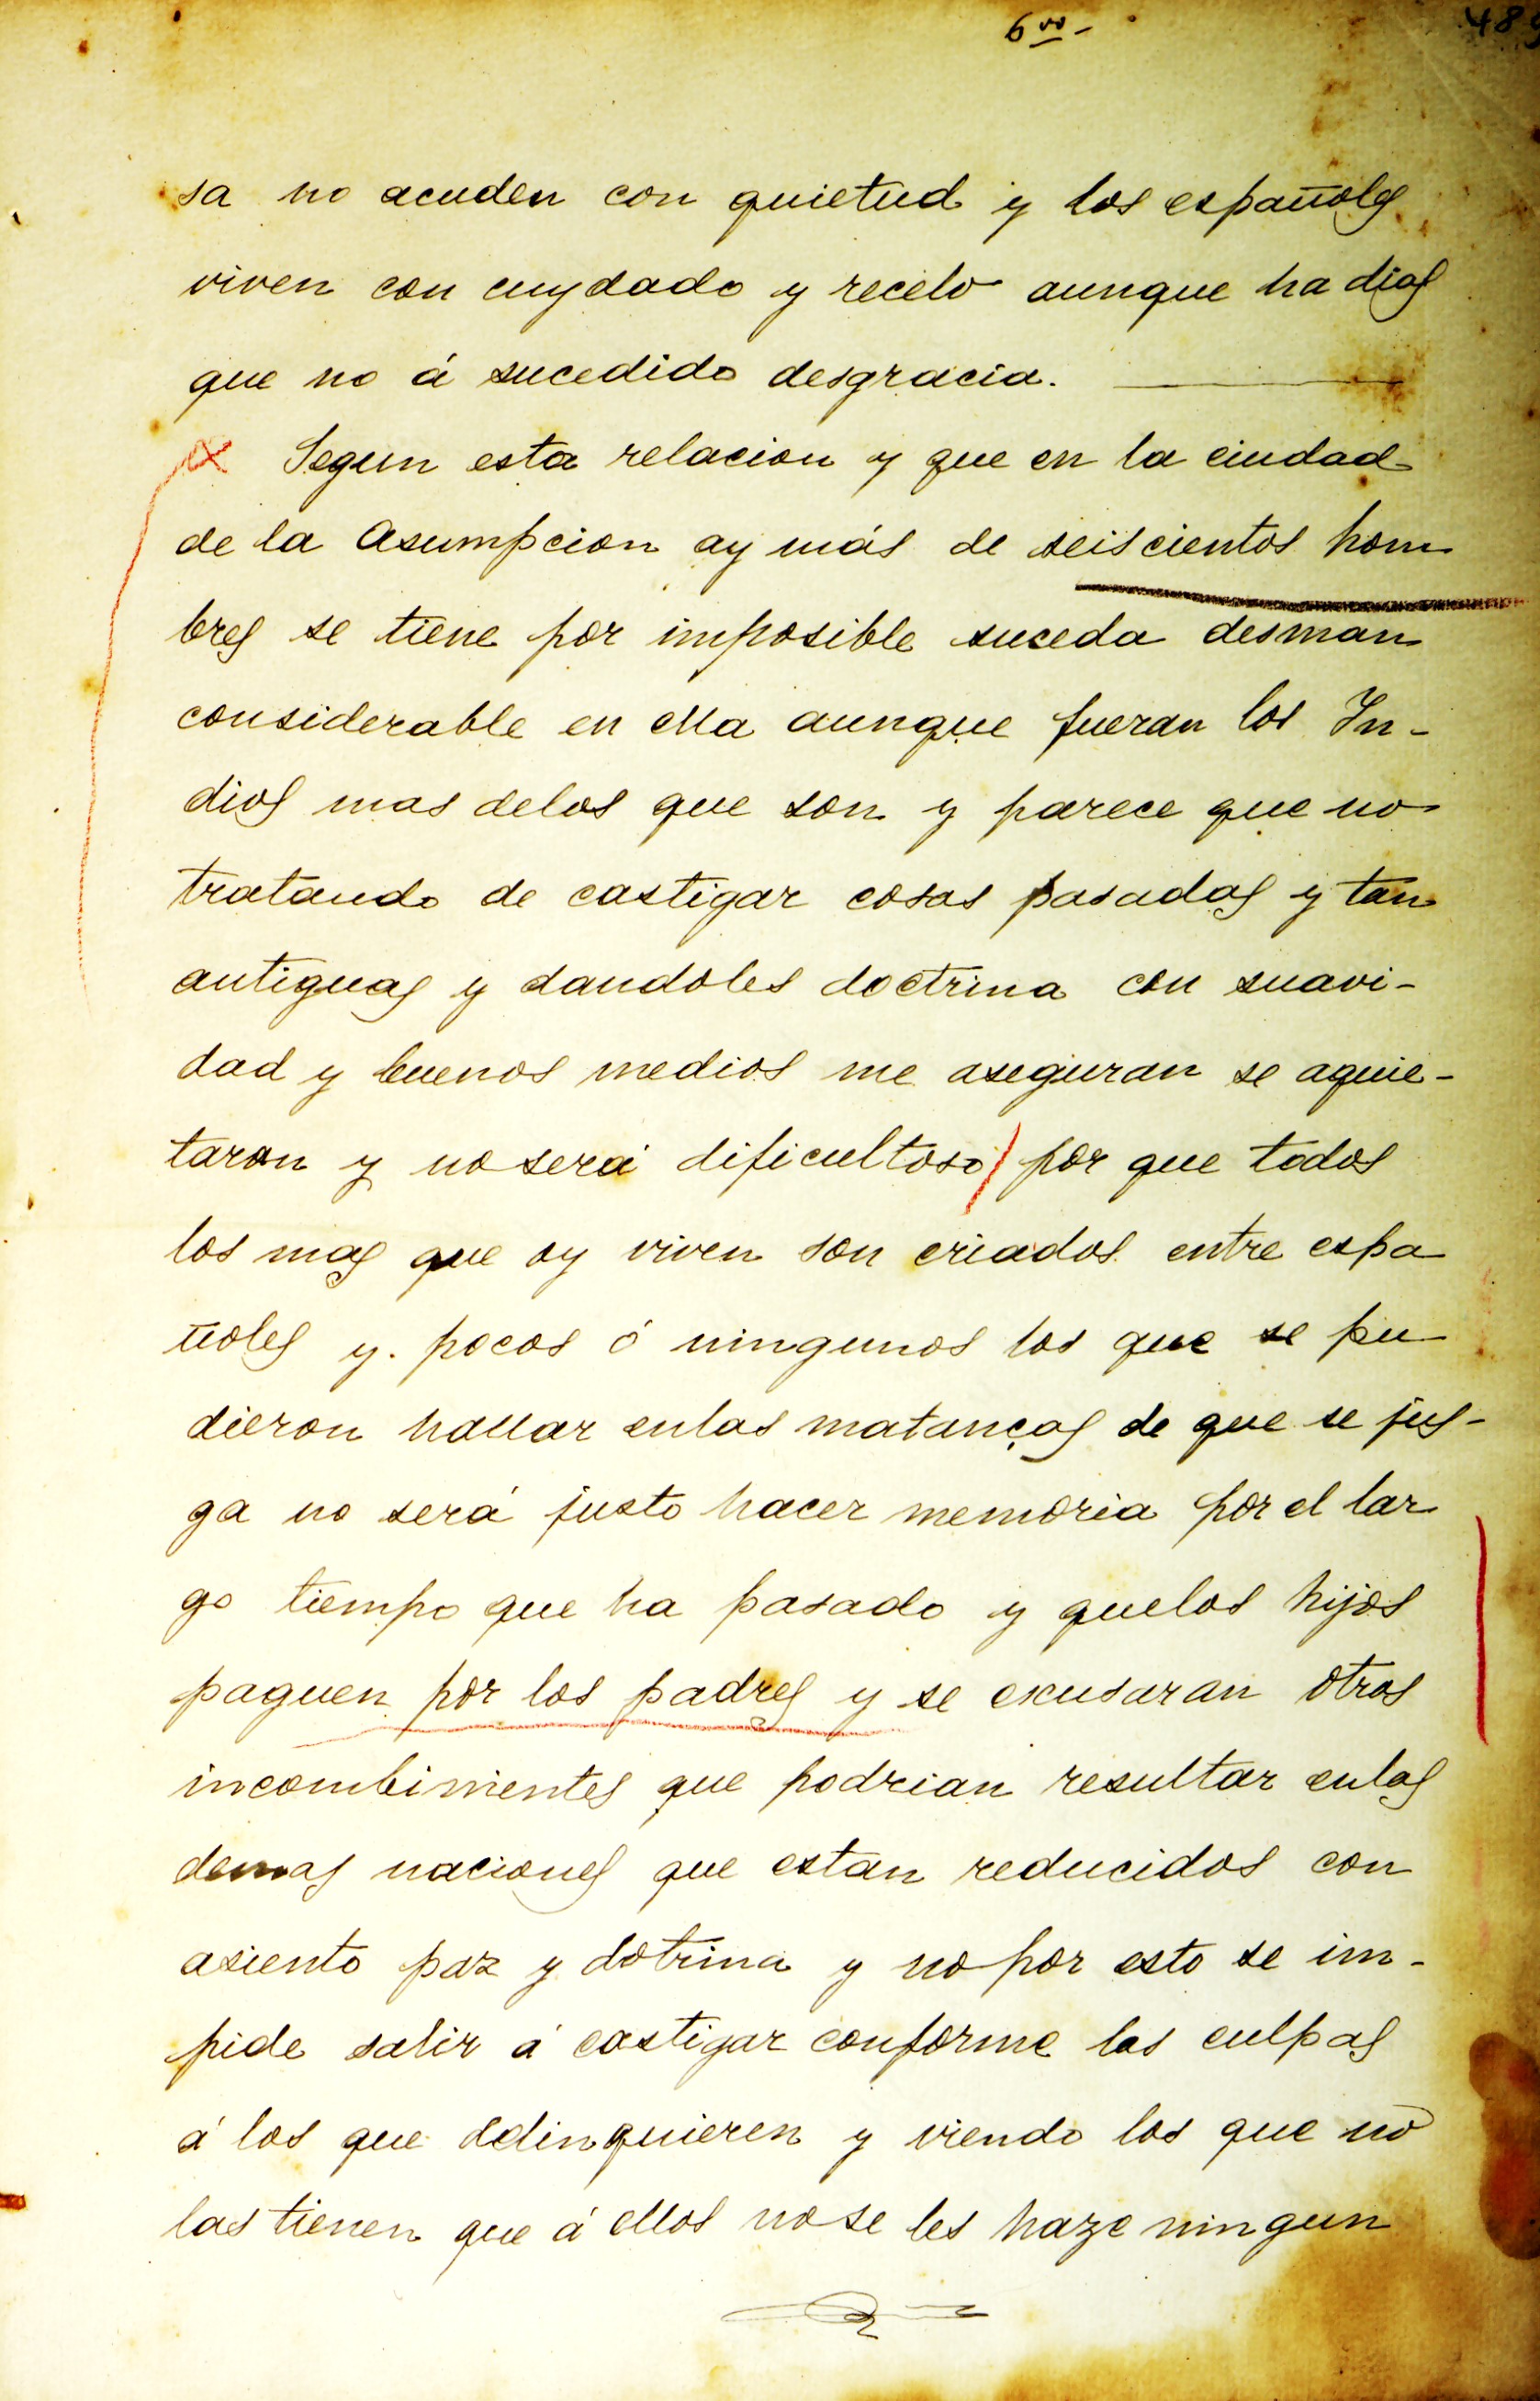 6 vo -
sa no acuden con quietud y los españoles
viven con cuydado y recelo aunque ha dias
que no á sucedido desgracia.
Segun esta relacion y que en la ciudad
de la Asumpcion ay más de seiscientos hom
bres se tiene por imposible suceda desman
considerable en ella aunque fueran los In-
dios mas delos que son y parece que no
tratando de castigar cosas pasadas y tan
antiguas y dandoles doctrina con suavi-
dad y buenos medios me aseguran se aquie-
taran y no será dificultoso por que todos
los mas que oy viven son criados entre espa
ñoles y pocos ó ningunos los que se pu
dieron hallar enlas matanças de que se jus-
ga no será justo hacer memoria por el lar
go tiempo que ha pasado y quelos hijos
paguen por los padres y se excusaran otros
incombinientes que podrian resultar enlas
demas naciones que estan reducidos con
asiento paz y dotrina y no por esto se im-
pide salir á castigar conforme las culpas
á los que delinquieren y viendo los que no
las tienen que á ellos no se les haze ningun